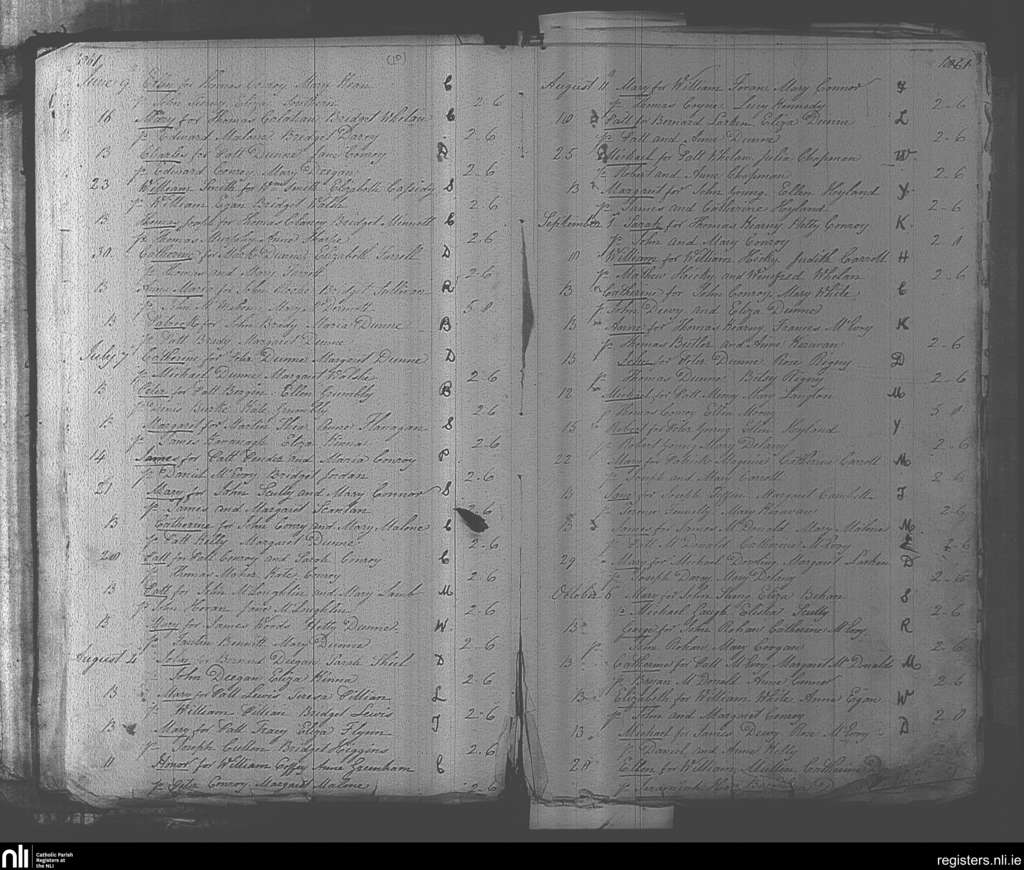 1861
(20)
June 9 Ellen for Thomas Conroy Mary Horan C
p John Kenny Eliza 2-6
16 Mary for Thomas Calahan Bridget Whelan C
p Edward Malone Bridget Darcy 2-6
B Charles for Patt Dunne Jane Conroy D
p Edward Conroy Mary Deegan 2-6
23 William Smith for Wm Smith Elizabeth Cassidy S
p William Egan Bridget Walsh 2-6
B Thomas for Thomas Clancy Bridget Minnett C
p Thomas Murphy Anne 2-6
30 Catherine for Mark Dunne Elizabeth Farrell D
p Thomas and Mary Farrell 2-6
B Anne Maria for John Bridget Sullivan R
p Mary 5-0
B for John Brady Maria Dunne B
p Patt Brady Margaret Dunne
July 7 Catherine for John Dunne Margaret Dunne D
p Michael Dunne Margaret Walsh 2-6
B Peter for Patt Bergin Ellen Grumbly B
p Denis Burke Kate Grumbly 2-6
B Margaret for Martin Anne Flanagan S
p James Kavanagh Eliza Kinna 2-6
14 James for Patt and Maria Conroy P
p Daniel McEvoy Bridget Jordan 2-6
21 Mary for John Scully and Mary Connor S
p James and Margaret Scanlan 2-6
B Catherine for John Conroy and Mary Malone C
p Patt Kelly Margaret Dunne 2-6
28 Patt for Patt Conroy and Sarah Conroy C
p Thomas Maher Kate Conroy 2-6
B Patt for John McLoughlin and Mary Lamb M
p John Horan Jane McLoughlin 2-6
B Mary for James Woods Betty Dunne W
p Bennett Mary Dunne 2-6
August 4 John for Bernard Deegan Sarah Shiel D
John Deegan Eliza Kinna 2-6
B Mary for Patt Lewis Teresa Pillian L
p William Pillian Bridget Lewis 2-6
B Mary for Patt Tracy Eliza Flynn T
p Joseph Cullen Bridget Higgins 2-6
11 Honor for William Coffey Anne Greenham C
p John Conroy Margaret Malone 2-6
1861
August 11 Mary for William Foran Mary Connor F
p Thomas Coyne Lucy Kennedy 2-6
18 Patt for Bernard Larkin Eliza Dunne L
p Patt and Anne Dunne 2-6
25 Michael for Patt Whelan Julia Chapman W
p Robert and Anne Chapman 2-6
B Margaret for John Young Ellen Hyland Y
p James and Catherine Hyland 2-6
September 8 Sarah for Thomas Kearny Betty Conroy K
p John and Mary Conroy 2-0
10 William for William Hicky Judith Carroll H
p Mathew Hicky and Winifred Whelan 2-6
B Catherine for John Conroy Mary White C
p John Deevy and Eliza Dunne
B Anne for Thomas Kearny Frances McEvoy K
p Thomas Butler and Anne Keawan 2-6
B for John Dunne Rose Rigny D
p Thomas Dunne Betsy Rigny 2-6
12 Michael for Patt Moroy Mary Langton M
p Thomas Conroy Ellen Moroy 5-0
15 Robert for John Young Ellen Hyland Y
Robert Young Mary Delany 2-6
22 Mary for Patrick Maguire Catherine Carroll M
p Joseph and Mary Carroll 2-6
B Jane for Joseph Margaret Campbell T
p Mary Keawan 2-6
B James for James McDonald Mary M
Patt McDonald Catherine McEvoy 2-6
29 Mary for Michael Dowling Margaret Larkin D
p Joseph Darcy Mary Delany 2-6
October 6 Mary for John Eliza Behan S
p Michael Scully 2-6
B George for John Rohan Catherine McEvoy R
p John Rohan Mary Corgan 2-6
B Catherine for Patt McEvoy Margaret McDonald M
p Bryan McDonald Anne Connor 2-6
B Elizabeth for William White Anne Egan W
p John and Margaret Conroy 2-0
B Michael for James Deevy Rose McEvoy D
p Daniel and Anne Kelly 2-6
20 Ellen for William Mullen Catherine
nli
Catholic Parish
Registers at
the NLI
registers.nli.ie